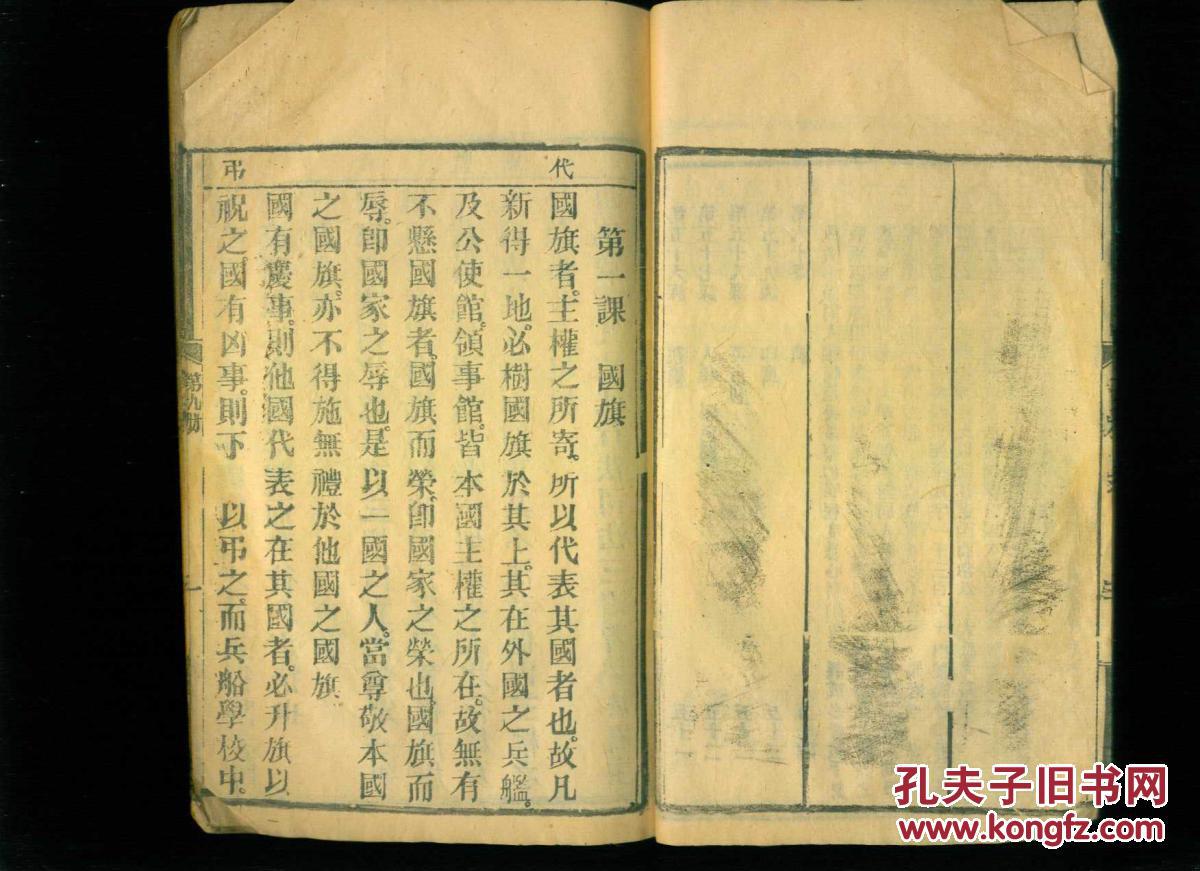 代
弔
第一課 國旗
國旗者。主權之所寄。所以代表其國者也。故凡
新得一地。必樹國旗於其上。其在外國之兵艦。
及公使館。領事館。皆本國主權之所在。故無有
不懸國旗者。國旗而榮。卽國家之榮也。國旗而
辱。卽國家之辱也。是以一國之人。當尊敬本國
之國旗。亦不得施無禮於他國之國旗
國有慶事。則他國代表之在其國者。必升旗以
祝之。國有凶事。則下以弔之。而兵船學校中。
第九册
一
孔夫子旧书网
www.kongfz.com